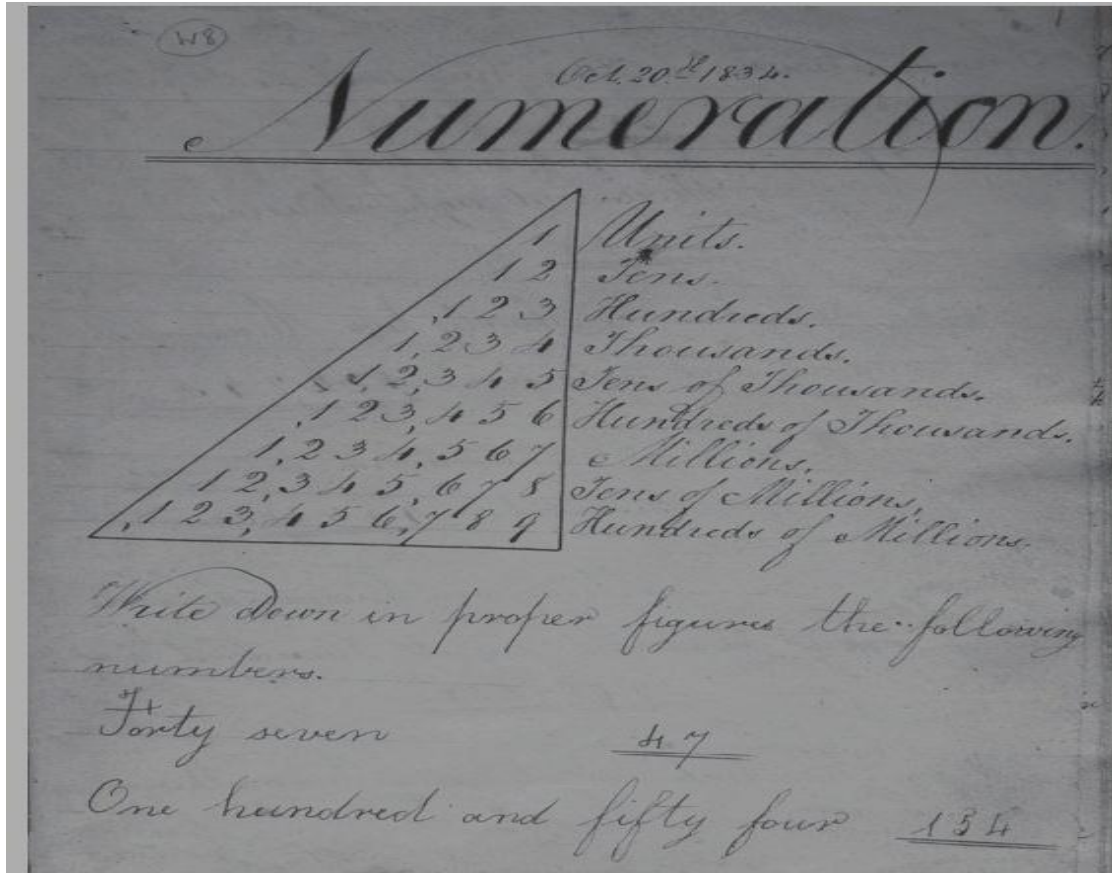 W8
1
Oct. 20th 1834.
Numeration.
1 Units.
1 2 Tens.
,1 2 3 Hundreds.
1,2 3 4 Thousands.
1 2,3 4 5 Tens of Thousands.
,1 2 3,4 5 6 Hundreds of Thousands.
1,2 3 4,5 6 7 Millions.
1 2,3 4 5,6 7 8 Tens of Millions,
,1 2 3,4 5 6,7 8 9 Hundreds of Millions.
Write Down in proper figures the following
numbers.
Forty seven 47
One hundred and fifty four 154